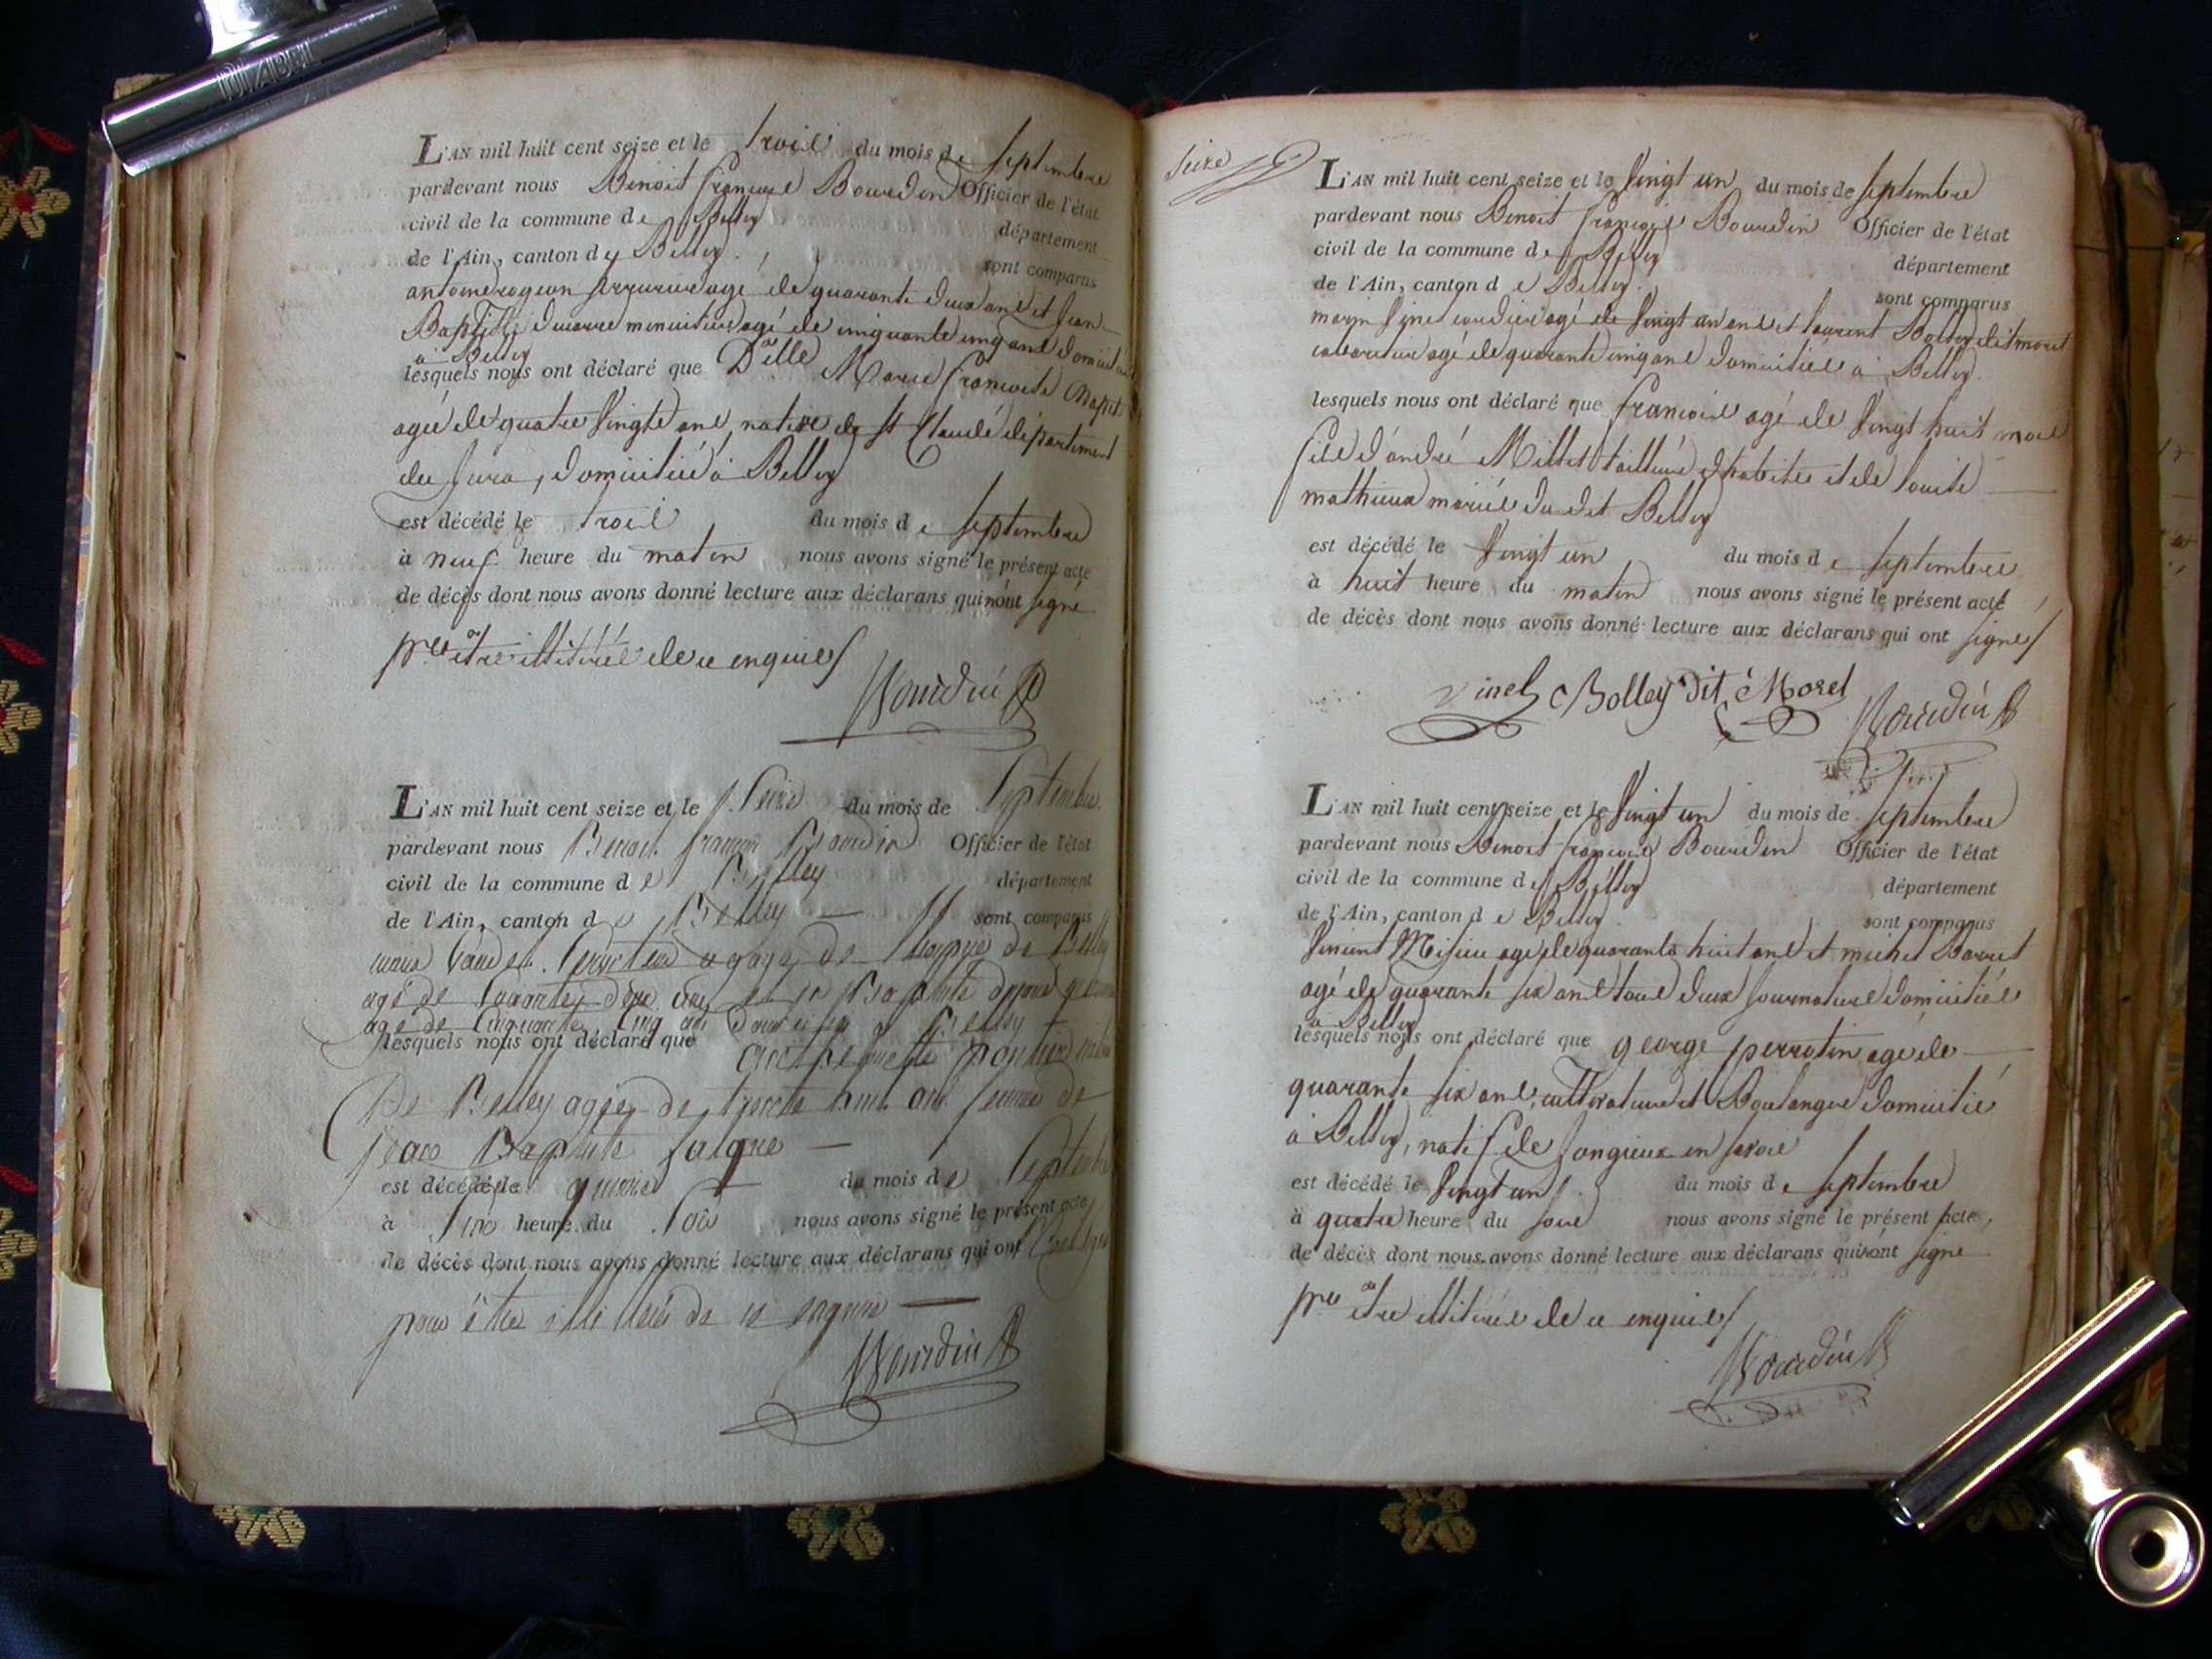 DIABEL
L'AN mil huit cent seize et le trois du mois de septembre
pardevant nous Benoit françois Bourdin Officier de l'état
civil de la commune de Belley département
de l'Ain, canton de Belley. sont comparus
antoine rogeon serrurier agé de quarante deux ans et Jean
Baptiste menuisier agé de cinquante cinq ans
à Belley
lesquels nous ont déclaré que Delle Marie françoise
agée de quatre vingts ans, native de St Claude département
du Jura, domiciliée à Belley
est décédé le trois du mois de septembre
à neuf heure du matin nous avons signé le présent acte
de décès dont nous avons donné lecture aux déclarans qui n'ont signé
pour être illitérés de ce enquis
Bourdin
L'AN mil huit cent seize et le Seize du mois de Septembre
pardevant nous Benoit françois Bourdin Officier de l'état
civil de la commune de Belley département
de l'Ain, canton de Belley sont comparus
de Belley
agé de ans et
agé de Cinquante Cinq ans à Belley
lesquels nous ont déclaré que
De Belley agée de trente huit ans femme de
Jean Baptiste
est décédée le quinze du mois de Septembre
à heure du Soir nous avons signé le présent acte
de décès dont nous avons donné lecture aux déclarans qui ont
pour être illitérés de ce enquis
Bourdin
seize
L'AN mil huit cent seize et le vingt un du mois de septembre
pardevant nous Benoit françois Bourdin Officier de l'état
civil de la commune de Belley département
de l'Ain, canton de Belley. sont comparus
marin vinet cordier agé de vingt un ans et laurent Bolley dit morel
agé de quarante cinq ans domiciliés à Belley.
lesquels nous ont déclaré que françois agé de vingt huit mois
fils d'andré Millet tailleur d'habits et de louise
mathieux mariés dudit Belley
est décédé le vingt un du mois de septembre
à huit heure du matin nous avons signé le présent acte
de décès dont nous avons donné lecture aux déclarans qui ont signé
vinet Bolley dit Morel Bourdin
L'AN mil huit cent seize et le vingt un du mois de septembre
pardevant nous Benoit françois Bourdin Officier de l'état
civil de la commune de Belley département
de l'Ain, canton de Belley sont comparus
vincent agé de quarante huit ans et michel
agé de quarante six ans tous deux journaliers domiciliés
à Belley
lesquels nous ont déclaré que george perrotin agé de
quarante six ans, cultivateur et Boulanger domicilié
à Belley, natif de Jongieux en savoie
est décédé le vingt un du mois de septembre
à quatre heure du soir nous avons signé le présent acte
de décès dont nous avons donné lecture aux déclarans qui n'ont signé
pour être illitérés de ce enquis
Bourdin